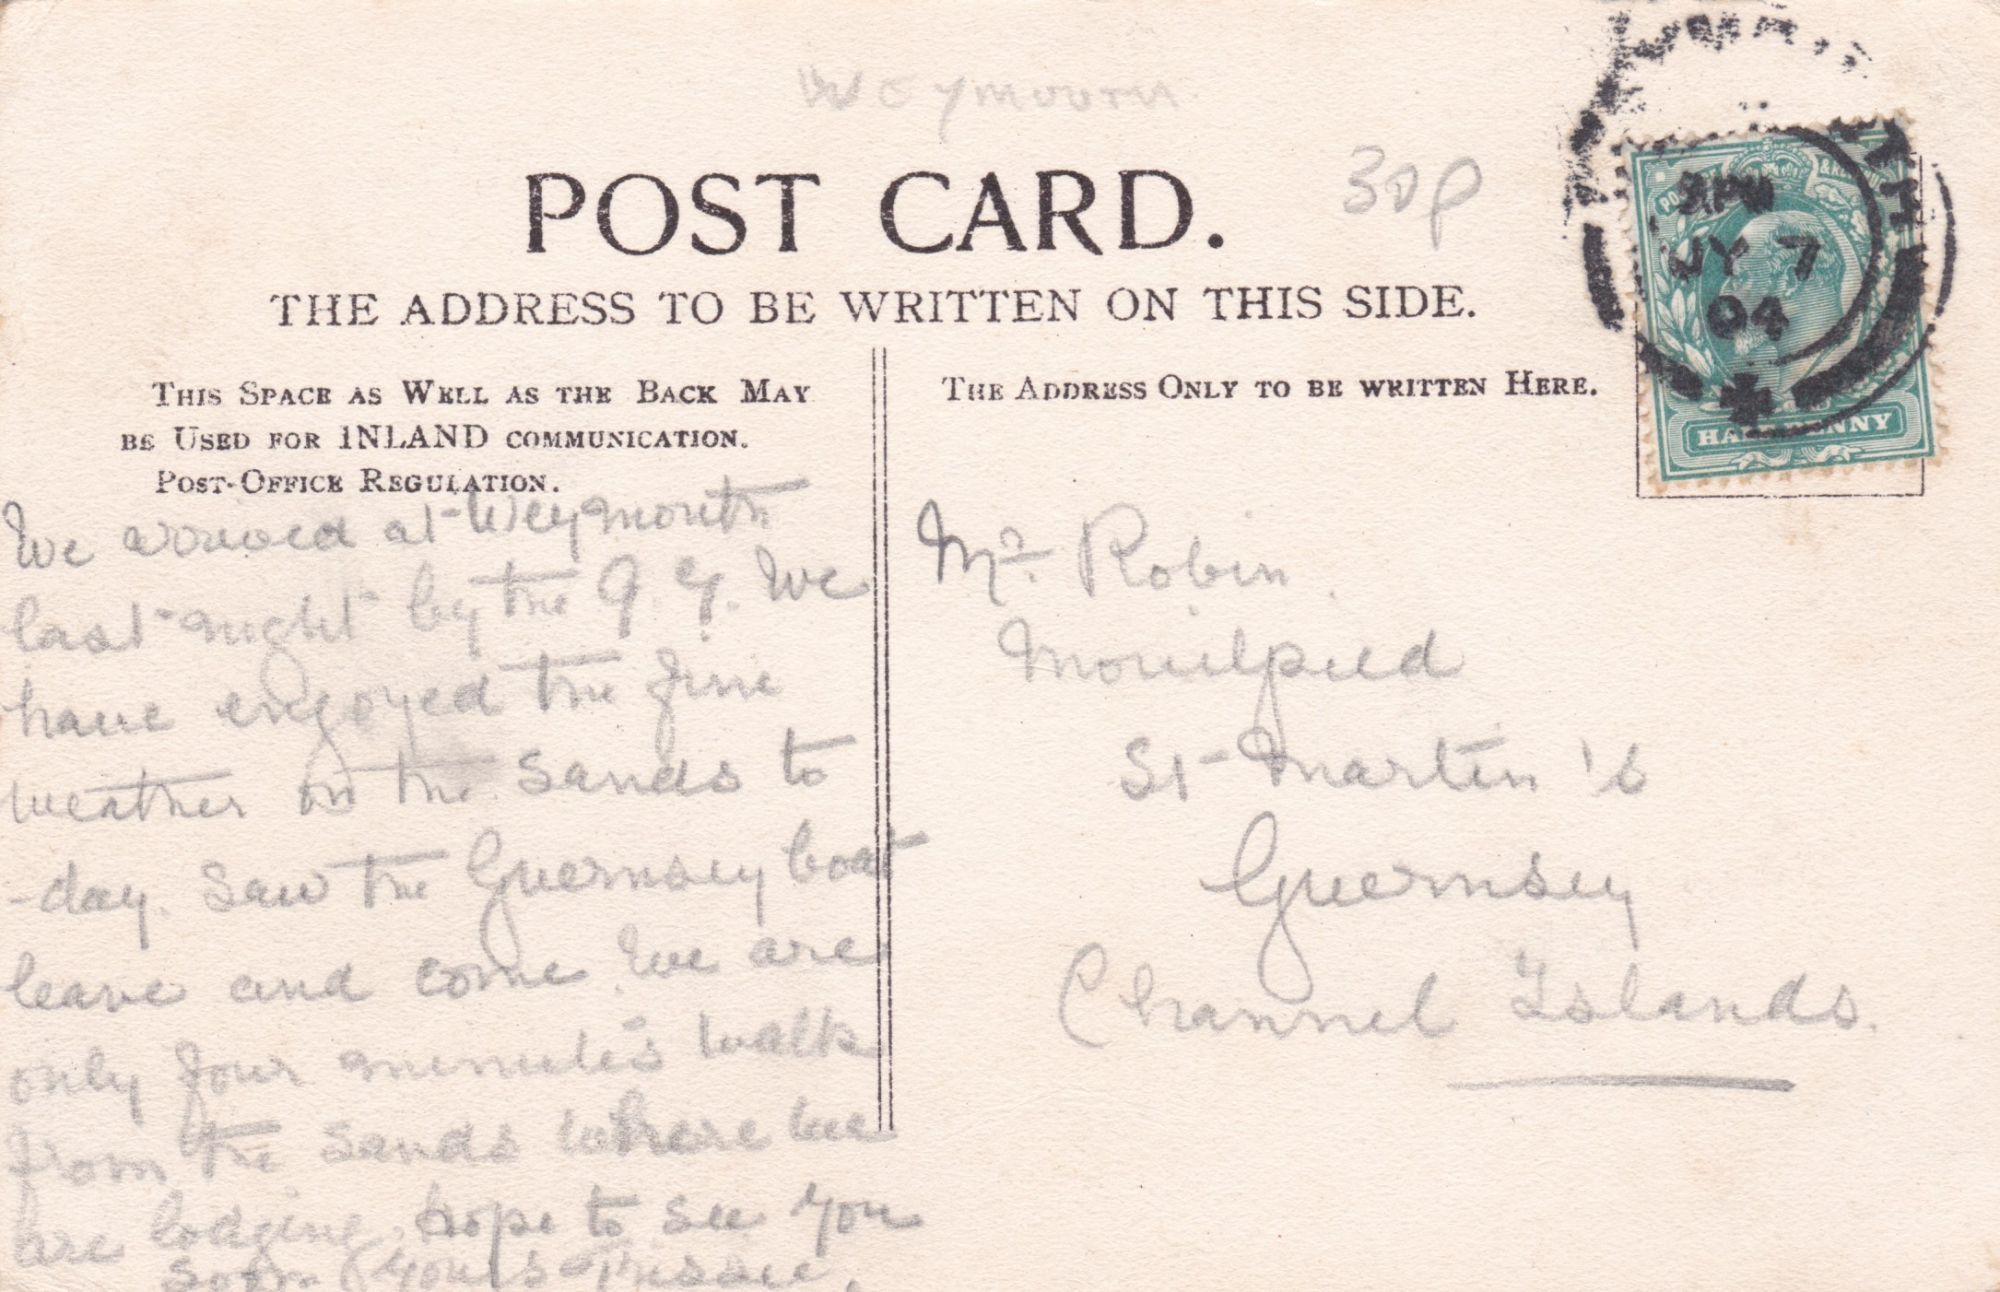 Weymouth
30p
POST CARD.
THE ADDRESS TO BE WRITTEN ON THIS SIDE.
THIS SPACE AS WELL AS THE BACK MAY
BE USED FOR INLAND COMMUNICATION.
POST-OFFICE REGULATION.
THE ADDRESS ONLY TO BE WRITTEN HERE.
JY 7
04
HALFPENNY
We arrived at Weymouth
last night by the G. Y. We
have enjoyed the fine
weather on the sands to
-day. Saw the Guernsey boat
leave and come. We are
only four minute's walk
from the sands where we
are lodging. hope to see you
soon. Yours
Mr. Robin.
Mouilpied
St Martin's
Guernsey
Channel Islands.